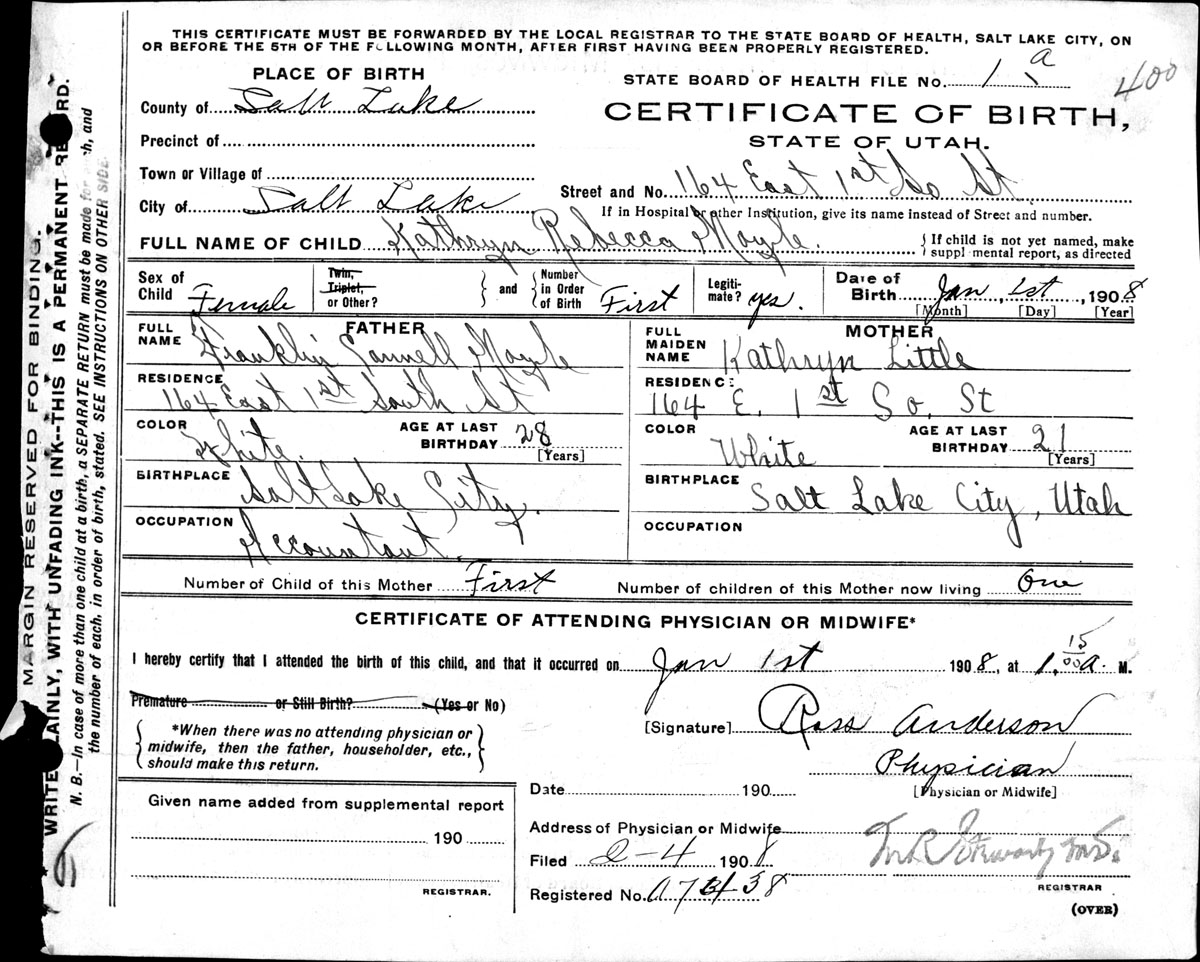 THIS CERTIFICATE MUST BE FORWARDED BY THE LOCAL REGISTRAR TO THE STATE BOARD OF HEALTH, SALT LAKE CITY, ON
OR BEFORE THE 5TH OF THE FOLLOWING MONTH, AFTER FIRST HAVING BEEN PROPERLY REGISTERED.
PLACE OF BIRTH
STATE BOARD OF HEALTH FILE No. 1 a
400
County of Salt Lake
CERTIFICATE OF BIRTH,
Precinct of
STATE OF UTAH.
Town or Village of
Street and No. 164 East 1st So St
City of Salt Lake
If in Hospital or other Institution, give its name instead of Street and number.
FULL NAME OF CHILD Kathryn Rebecca Moyle.
If child is not yet named, make
suppl mental report, as directed
Sex of Child Female
Twin, Triplet, or Other?
and
Number in Order of Birth First
Legiti-mate? yes.
Date of Birth Jan, 1st, 1908
[Month] [Day] [Year]
FATHER
FULL NAME Franklin Moyle
RESIDENCE
164 East 1st South St
COLOR White.
AGE AT LAST BIRTHDAY 28
[Years]
BIRTHPLACE Salt Lake City.
OCCUPATION Accountant.
MOTHER
FULL MAIDEN NAME Kathryn Little
RESIDENCE
164 E. 1st So. St
COLOR White
AGE AT LAST BIRTHDAY 21
[Years]
BIRTHPLACE
Salt Lake City, Utah
OCCUPATION
Number of Child of this Mother First
Number of children of this Mother now living One
CERTIFICATE OF ATTENDING PHYSICIAN OR MIDWIFE*
I hereby certify that I attended the birth of this child, and that it occurred on Jan 1st 1908, at 1.15 a. M.
Premature or Still Birth? (Yes or No)
[Signature] Ross Anderson
*When there was no attending physician or
midwife, then the father, householder, etc.,
should make this return.
Physician
[Physician or Midwife]
Date 190
Given name added from supplemental report
190
REGISTRAR.
Address of Physician or Midwife
Filed 2-4 1908
Registered No. a 7 3438
REGISTRAR
(OVER)
MARGIN RESERVED FOR BINDING.
WRITE LAINLY, WITH UNFADING INK--THIS IS A PERMANENT RE ORD.
N. B.—In case of more than one child at a birth, a SEPARATE RETURN must be made for ch, and
the number of each, in order of birth, stated. SEE INSTRUCTIONS ON OTHER SIDE